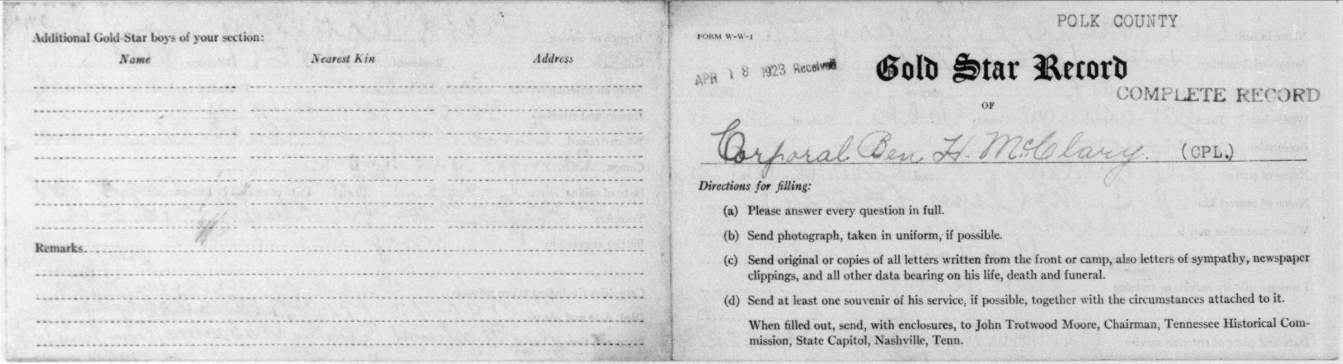 Additional Gold-Star boys of your section:
Name Nearest Kin Address
Remarks
POLK COUNTY
FORM W-W-1
APR 18 1923 Received
Gold Star Record
COMPLETE RECORD
OF
Corporal Ben H. McClary. (CPL.)
Directions for filling:
(a) Please answer every question in full.
(b) Send photograph, taken in uniform, if possible.
(c) Send original or copies of all letters written from the front or camp, also letters of sympathy, newspaper
clippings, and all other data bearing on his life, death and funeral.
(d) Send at least one souvenir of his service, if possible, together with the circumstances attached to it.
When filled out, send, with enclosures, to John Trotwood Moore, Chairman, Tennessee Historical Com-
mission, State Capitol, Nashville, Tenn.